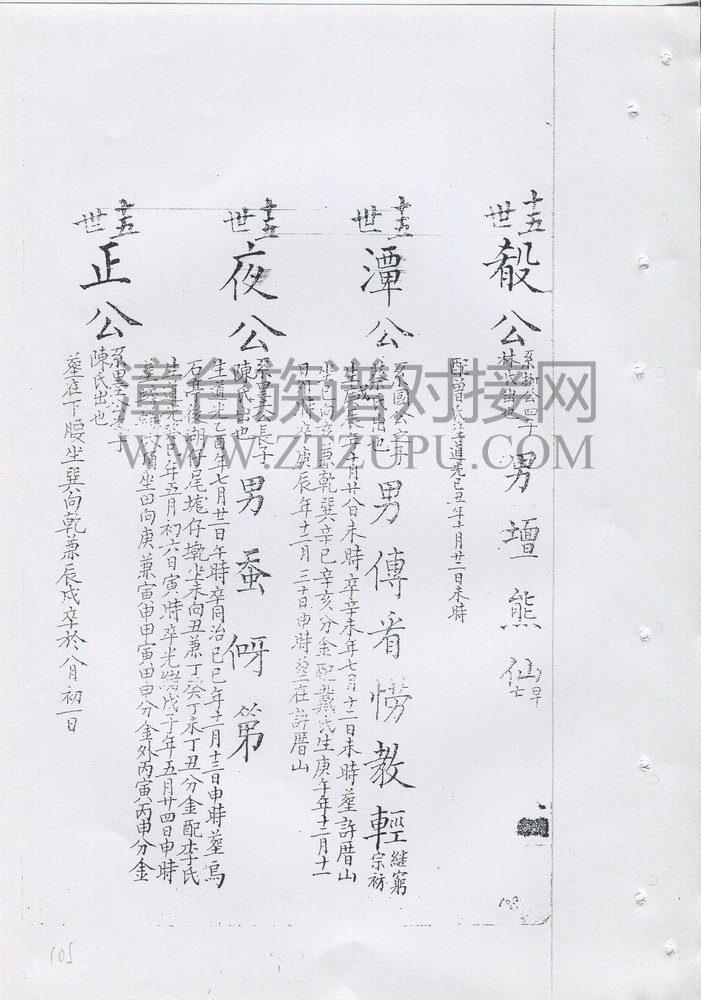 十五世
殽公
林氏出也
男壇熊仙
早亡
配曾氏生道光己丑年十月廿二日未時
十五世
潭公
男傳看愣教輕
繼窮宗祊
生戊辰年十月廿八日未時卒辛未年七月十二日未時葬許厝山
坐巳向亥兼乾巽辛巳辛亥分金配戴氏生庚午年十二月十一
庚辰年十二月三十日申時葬在許厝山
十五世
夜公
陳氏出也
男蚕
第
生道光乙酉年七月廿二日午時卒同治己巳年十一月十三日申時葬烏
未向丑兼丁癸丁未丁丑分金配李氏
年五月初六日寅時卒光緒戊子年五月廿四日申時
坐甲向庚兼寅申甲寅甲申分金外丙寅丙申分金
十五世
正公
陳氏出也
葬在下腰坐巽向乾兼辰戌卒於八月初一日
澶台族谱对接网
WWW.ZTZUPU.COM
108
105